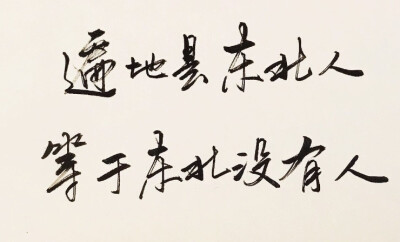 遍地是东北人
等于东北没有人